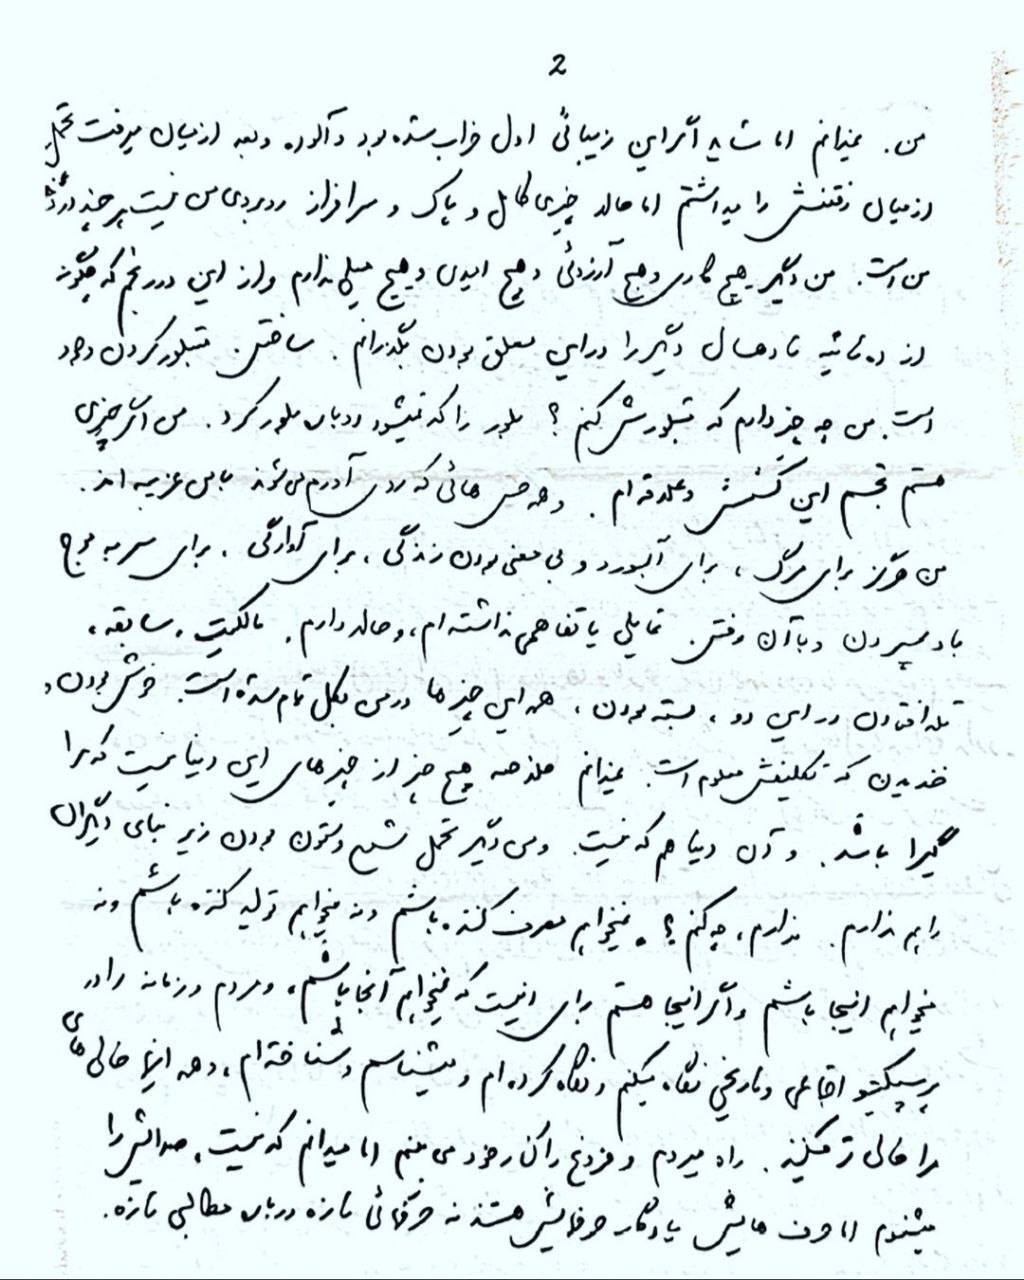 2
من. نمیدانم اما شاید اگر این زیبائی اول خراب شده بود و آلوده و بعد از میان میرفت تحمل
از میان رفتنش را میداشتم اما حالا چیزی کامل و پاک و سرافراز روبروی من نیست هر چند در
من است. من دیگر هیچ کاری و هیچ آرزوئی و هیچ امیدی و هیچ میلی ندارم و از این در رنجم که چگونه
از ده ثانیه تا دهسال دیگر را در این معلق بودن بگذرانم. ساختن. متبلور کردن وجود
است. من چه چیز دارم که متبلورش کنم؟ بلور را که نمیشود دوباره بلور کرد. من اگر چیزی
هستم تجسم این کشش و علاقه ام. و همه حس هائی که روی آورم میشوند با من غریبه اند.
من هرگز برای مرگ، برای آبسورد و بی معنی بودن زندگی، برای آوارگی، برای سر به موج
باد سپردن و با آن رفتن. تمایلی یا تفاهمی نداشته ام، و حالا دارم. مالکیت، سابقه،
تله افتادن در این دو، بسته بودن، همه این چیزها در من بکل تمام شده است. خوش بودن و
خندیدن که تکلیفش معلوم است. نمیدانم خلاصه هیچ چیز از چیزهای این دنیا نیست که مرا
گیرا باشد. و آن دنیا هم که نیست. و من دیگر تحمل شمع و ستون بودن زیر بنای دیگران
را هم ندارم. ندارم، چه کنم؟. نمیخواهم مصرف کننده باشم و نه میخواهم تولید کننده باشم و نه
میخواهم اینجا باشم و اگر اینجا هستم برای اینست که نمیخواهم آنجا باشم، و مردم و زمانه را در
پرسپکتیو اجتماعی و تاریخی نگاه میکنم و نگاه کرده ام و میشناسم و شناخته ام، و همه اینها خالی های
مرا خالی تر میکنند. راه میروم و فروغ را کنار خود می بینم اما میدانم که نیست. صدایش را
میشنوم اما حرف هایش یادگار حرفهایش هستند نه حرفهائی تازه درباره مطالبی تازه.